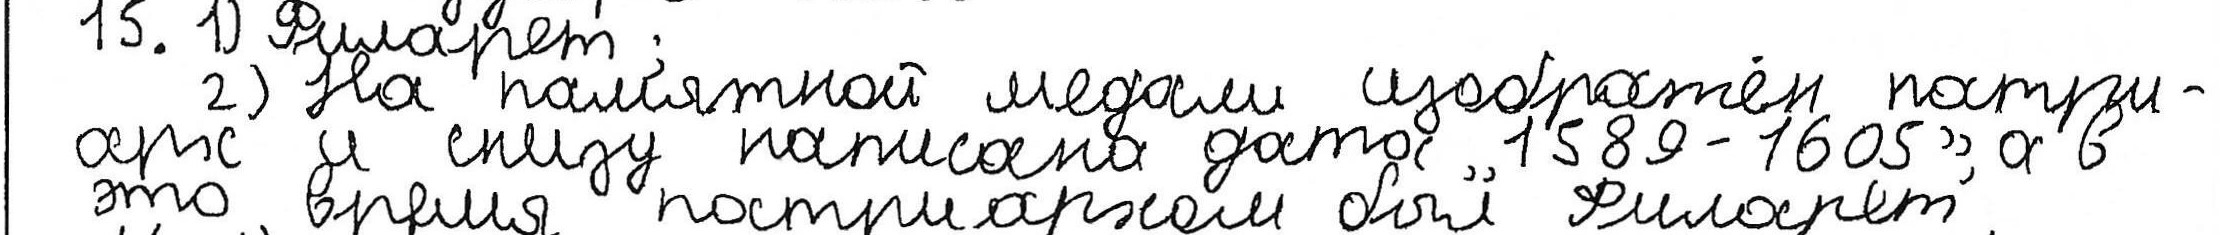 15. 1) Филарет;
2) На памятной медали изображён патри-
арх и снизу написана дата „1589-1605”, а в
это время патриархом был Филарет.